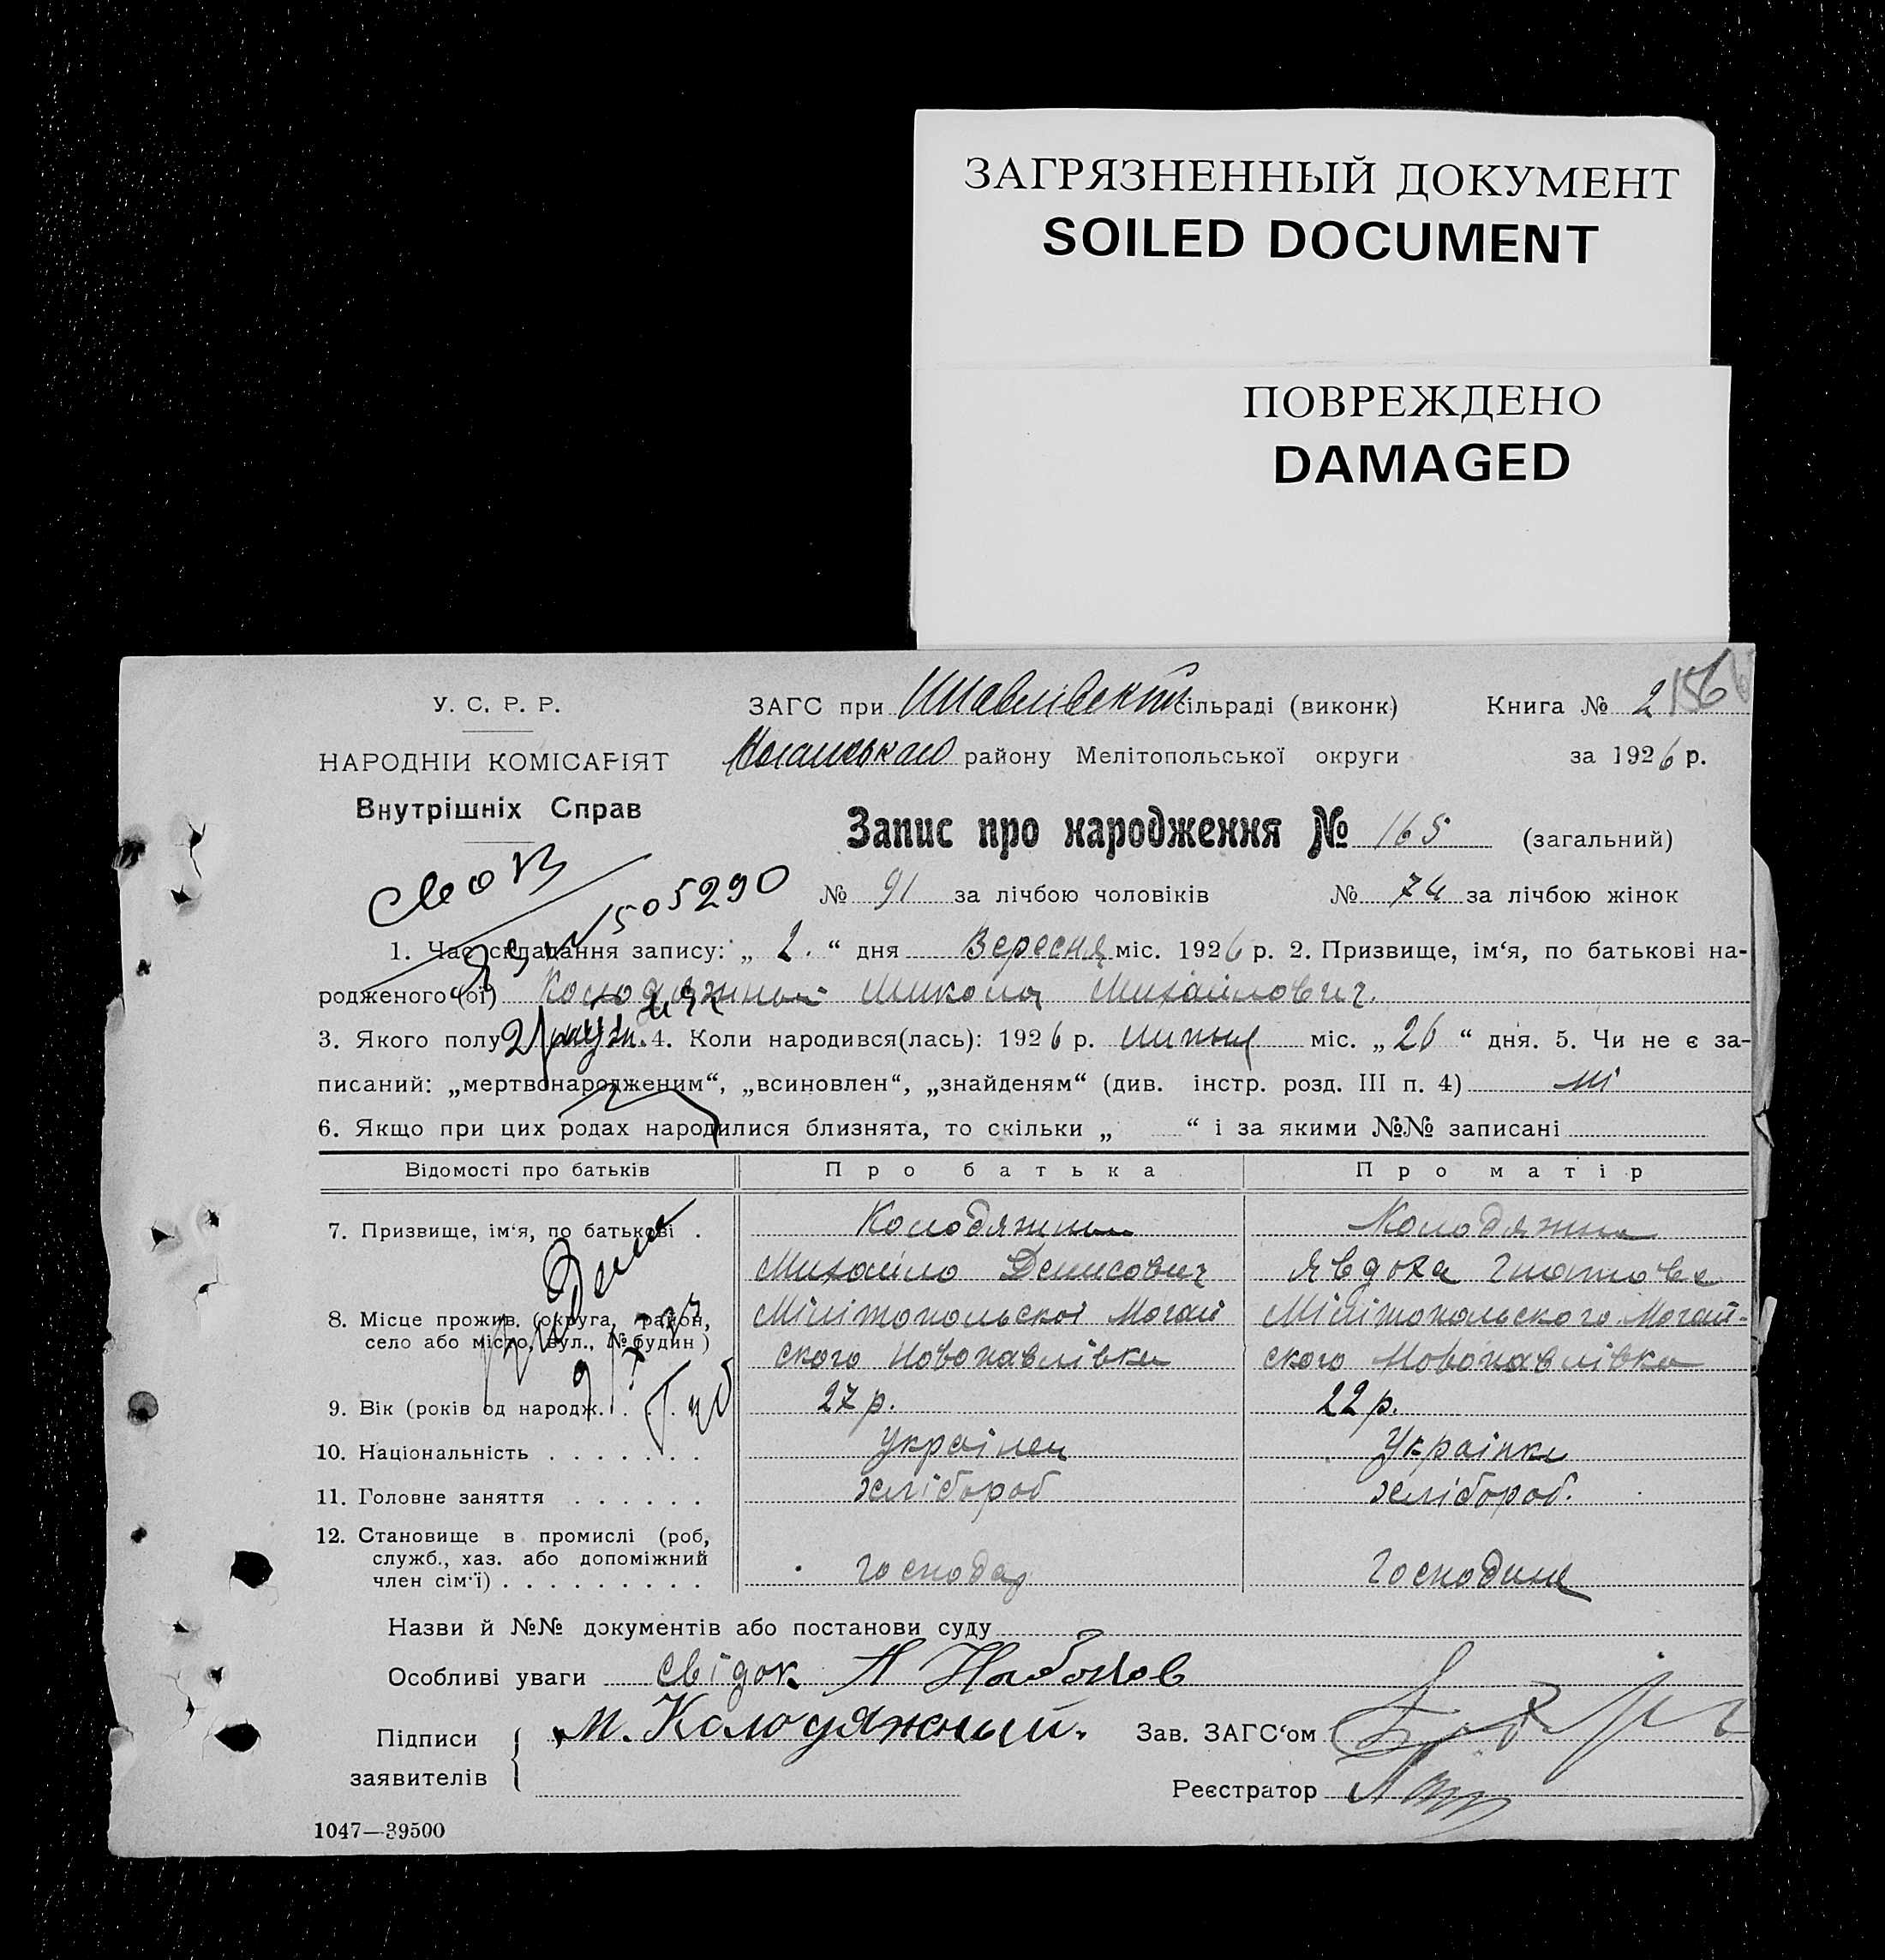 ЗАГРЯЗНЕННЫЙ ДОКУМЕНТ
SOILED DOCUMENT
ПОВРЕЖДЕНО
DAMAGED
У. С. Р. Р.
ЗАГС при сільраді (виконк) Книга № 2 156
НАРОДНІЙ КОМІСАРІЯТ
району Мелітопольської округи за 1926 р.
Внутрішніх Справ
Запис про народження № 165 (загальний)
№ 91 за лічбою чоловіків № 74 за лічбою жінок
505290
1. Час складання запису: „ 2. “ дня Вересня міс. 1926 р. 2. Призвище, ім‘я, по батькові на-
родженого (ої) Колодяжный Микола Михайлович.
3. Якого полу муж. 4. Коли народився(лась): 1926 р. липня міс. „ 26 “ дня. 5. Чи не є за-
писаний: „мертвонародженим“, „всиновлен“, „знайденям“ (див. інстр. розд. III п. 4) ні
6. Якщо при цих родах народилися близнята, то скільки „ “ і за якими №№ записані
Відомості про батьків Про батька Про матір
7. Призвище, ім‘я, по батькові . Колодяжный Колодяжна
Михайло Денисович Явдоха Гнатовна
8. Місце прожив. (округа, район, Мілітопольскоі Могай Мілітопольского Могай-
село або місто, вул., № будин ) ского Новопавлівка ского Новопавлівка
9. Вік (років од народж. . . . 27 р. 22 р.
10. Національність . . . . . . . Украінец Украінка
11. Головне заняття . . . . . . хлібороб хлібороб.
12. Становище в промислі (роб,
служб., хаз. або допоміжний
член сім‘ї) . . . . . . . . . Господар Господиня
Назви й №№ документів або постанови суду
Особливі уваги Свідок А Набоков
Підписи М. Колодяжный. Зав. ЗАГС‘ом
заявителів
Реєстратор
1047—39500